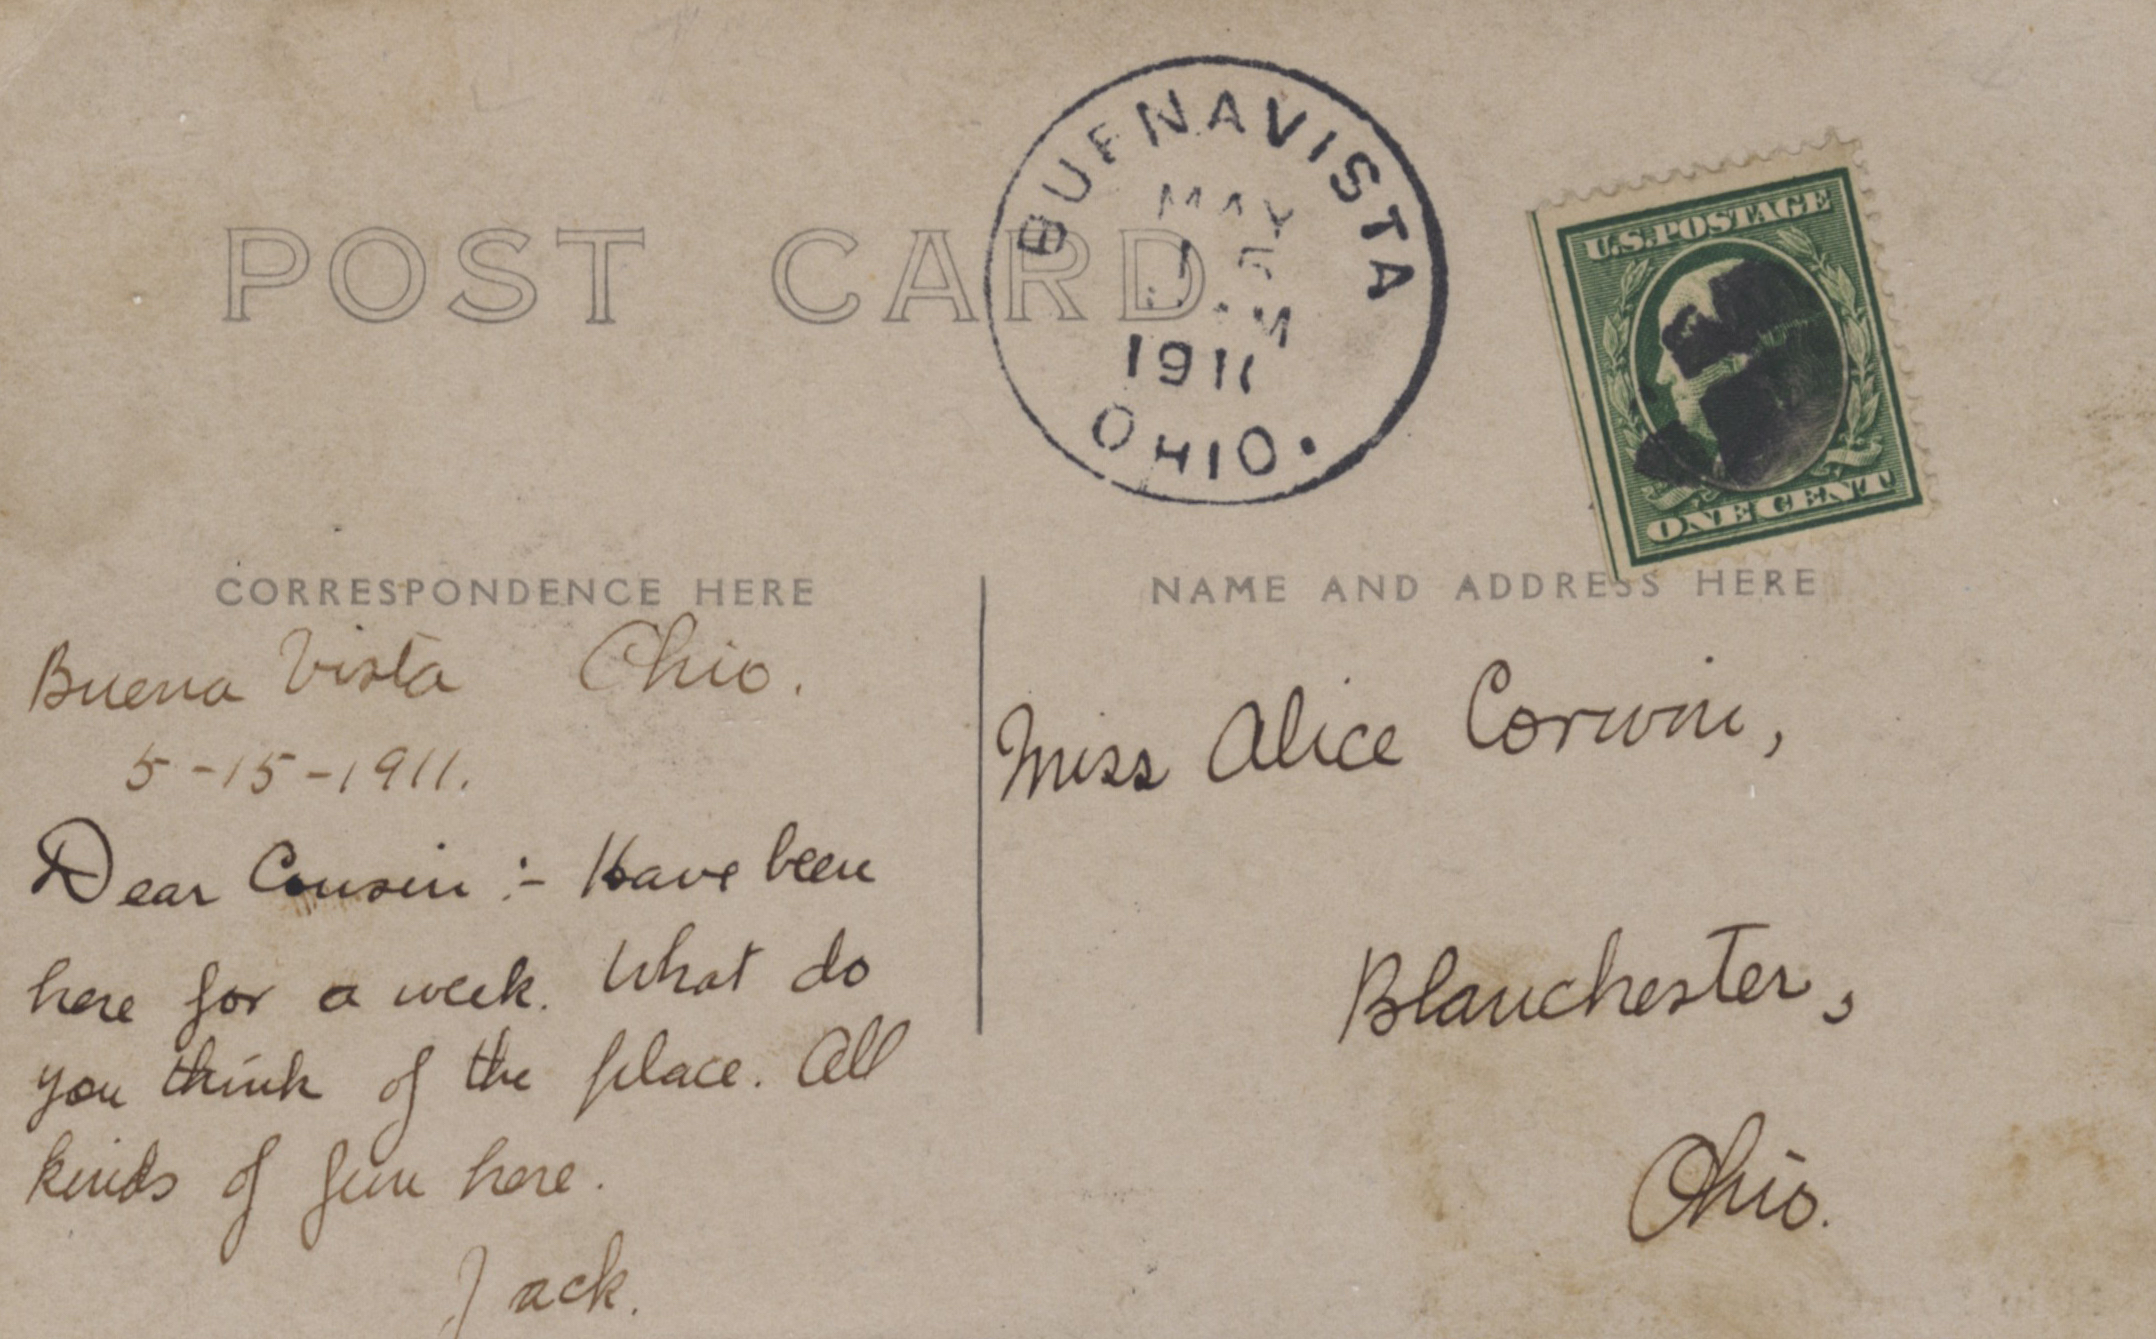 BUENAVISTA
MAY
1
AM
1911
OHIO.
U.S. POSTAGE
ONE CENT
POST CARD
CORRESPONDENCE HERE
Buena Vista Ohio.
5-15-1911.
Dear Cousin:- Have been
here for a week. What do
you think of the place. All
kinds of fun here.
Jack.
NAME AND ADDRESS HERE
Miss Alice Corwin,
Blanchester,
Ohio.